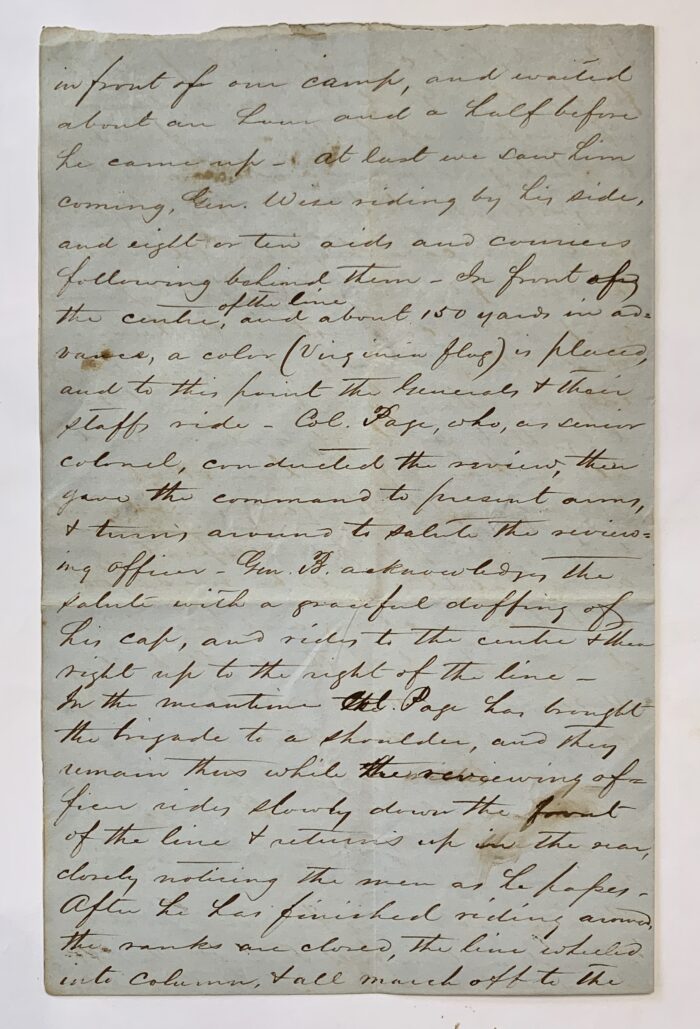 in front of our camp, and waited
about an hour and a half before
he came up - at last we saw him
coming, Gen. Wise riding by his side,
and eight or ten aids and couriers
following behind them - In front of
the centre, of the line, and about 150 yards in ad=
vance, a color (Virginia flag) is placed,
and to this point the Generals & their
staffs ride - Col. Page, who, as senior
colonel, conducted the review, then
gave the command to present arms,
& turns around to salute the review=
ing officer - Gen. B. acknowledges the
salute with a graceful doffing of
his cap, and rides to the centre & then
right up to the right of the line -
In the meantime Col. Page has brought
the brigade to a shoulder, and they
remain thus while the reviewing of=
ficer rides slowly down the front
of the line & returns up in the rear,
closely noticing the men as he passes -
After he has finished riding around,
the ranks are closed, the line wheeled
into column, & all march off to the